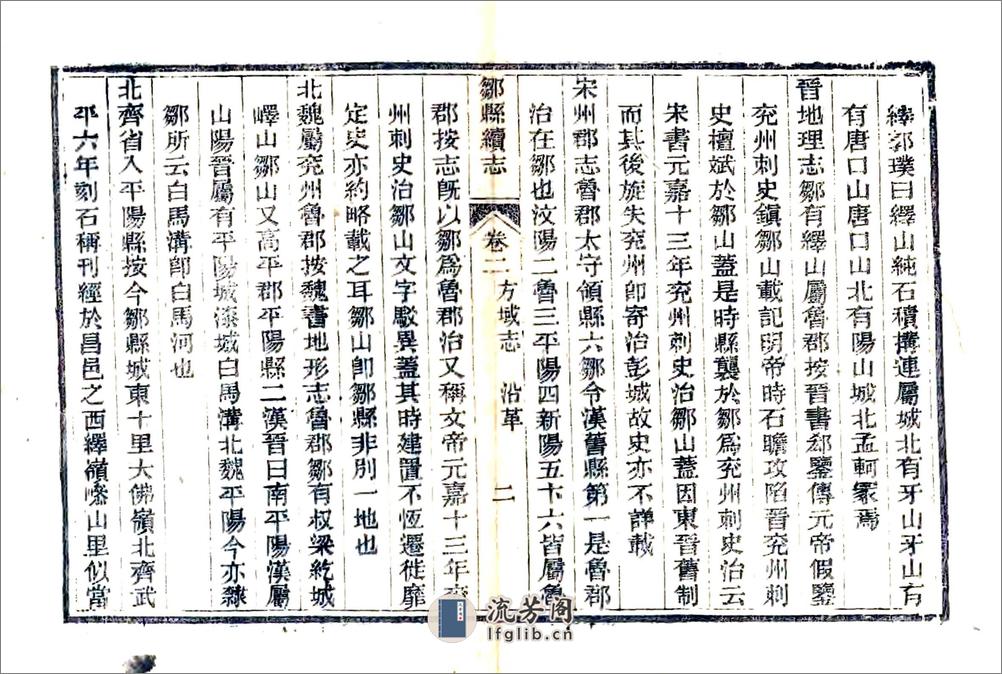 繹郭璞曰繹山純石積搆連屬城北有牙山牙山有
有唐口山唐口山北有陽山城北孟軻冢焉
晉地理志鄒有繹山屬魯郡按晉書郗鑒傳元帝假鑒
兖州刺史鎮鄒山載記明帝時石瞻攻陷晉兖州刺
史檀斌於鄒山蓋是時縣襲於鄒爲兖州刺史治云
宋書元嘉十三年兖州刺史治鄒山蓋因東晉舊制
而其後旋失兖州卽寄治彭城故史亦不詳載
宋州郡志魯郡太守領縣六鄒令漢舊縣第一是魯郡
治在鄒也汶陽二魯三平陽四新陽五卞六皆屬魯
鄒縣續志 卷二 方域志 沿革 二
郡按志旣以鄒爲魯郡治又稱文帝元嘉十三年兖
州刺史治鄒山文字駁異蓋其時建置不恆遷徙靡
定史亦約略載之耳鄒山卽鄒縣非別一地也
北魏屬兖州魯郡按魏書地形志魯郡鄒有叔梁紇城
嶧山鄒山又高平郡平陽縣二漢晉曰南平陽漢屬
山陽晉屬有平陽城漆城白馬溝北魏平陽今亦隸
鄒所云白馬溝卽白馬河也
北齊省入平陽縣按今鄒縣城東十里大佛嶺北齊武
平六年刻石稱刊經於昌邑之西繹嶺嵺山里似當
流芳阁
lfglib.cn